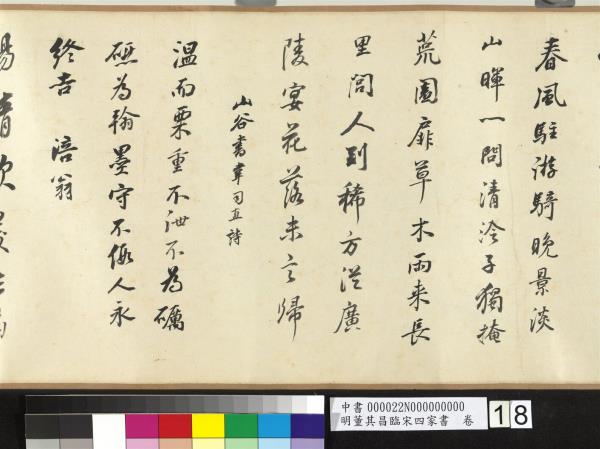 春風駐游騎晚景淡
山暉一問清泠子獨掩
荒園扉草木雨来長
里閭人到稀方従廣
陵宴花落未言歸
山谷書韋司直詩
温而栗重不泄不為礪
礪為翰墨守不假人永
終吉 涪翁
中書 000022N000000000
明董其昌臨宋四家書 卷
18